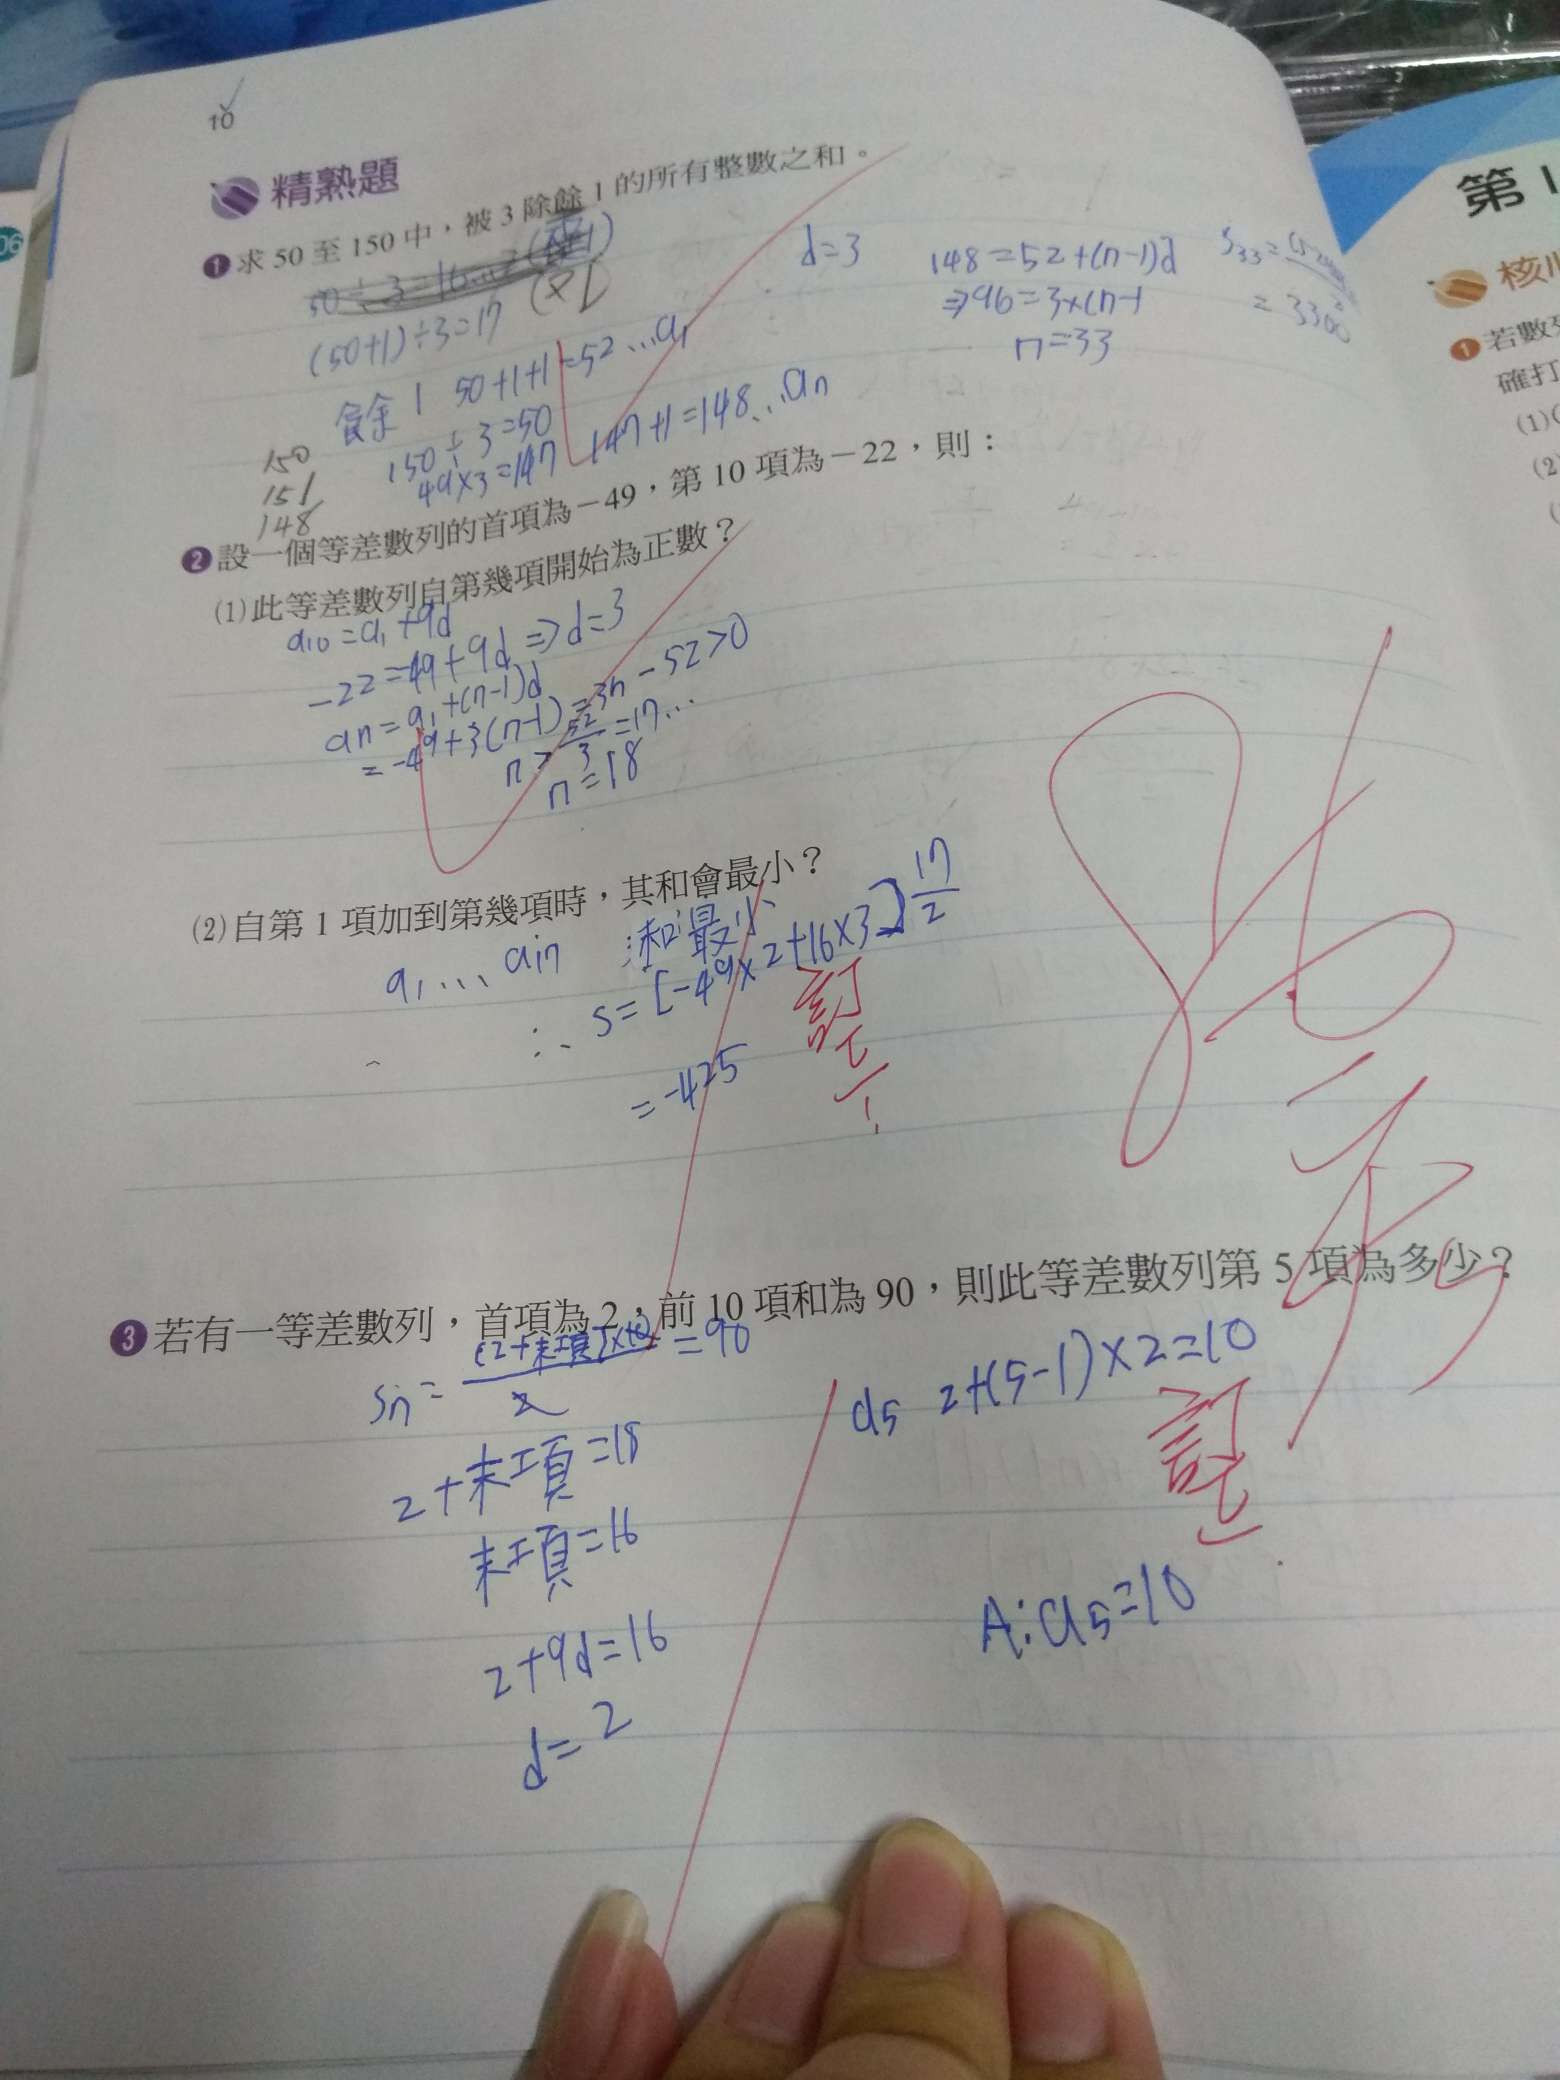 10
精熟題
1 求 50 至 150 中，被 3 除餘 1 的所有整數之和。
50÷3=16...2
(50+1)÷3=17
餘 1 50+1+1=52...a1
150÷3=50
49×3=147 147+1=148...an
150
151
148
d=3
148=52+(n-1)d
⇒96=3×(n-1
n=33
S33=
=3300
2 設一個等差數列的首項為－49，第 10 項為－22，則：
(1)此等差數列自第幾項開始為正數？
a10=a1+9d
-22=-49+9d⇒d=3
an=a1+(n-1)d
=-49+3(n-1)=3n-52>0
n>52/3=17...
n=18
(2)自第 1 項加到第幾項時，其和會最小？
a1...a17 和最小
∴ S=[-49×2+16×3]17/2
=-425
訂正
3 若有一等差數列，首項為 2，前 10 項和為 90，則此等差數列第 5 項為多少？
Sn=(2+末項)×10/2=90
2+末項=18
末項=16
2+9d=16
d=2
a5 2+(5-1)×2=10
訂正
A:a5=10
第 1
核心
1 若數
確打
(1)
(2)
06